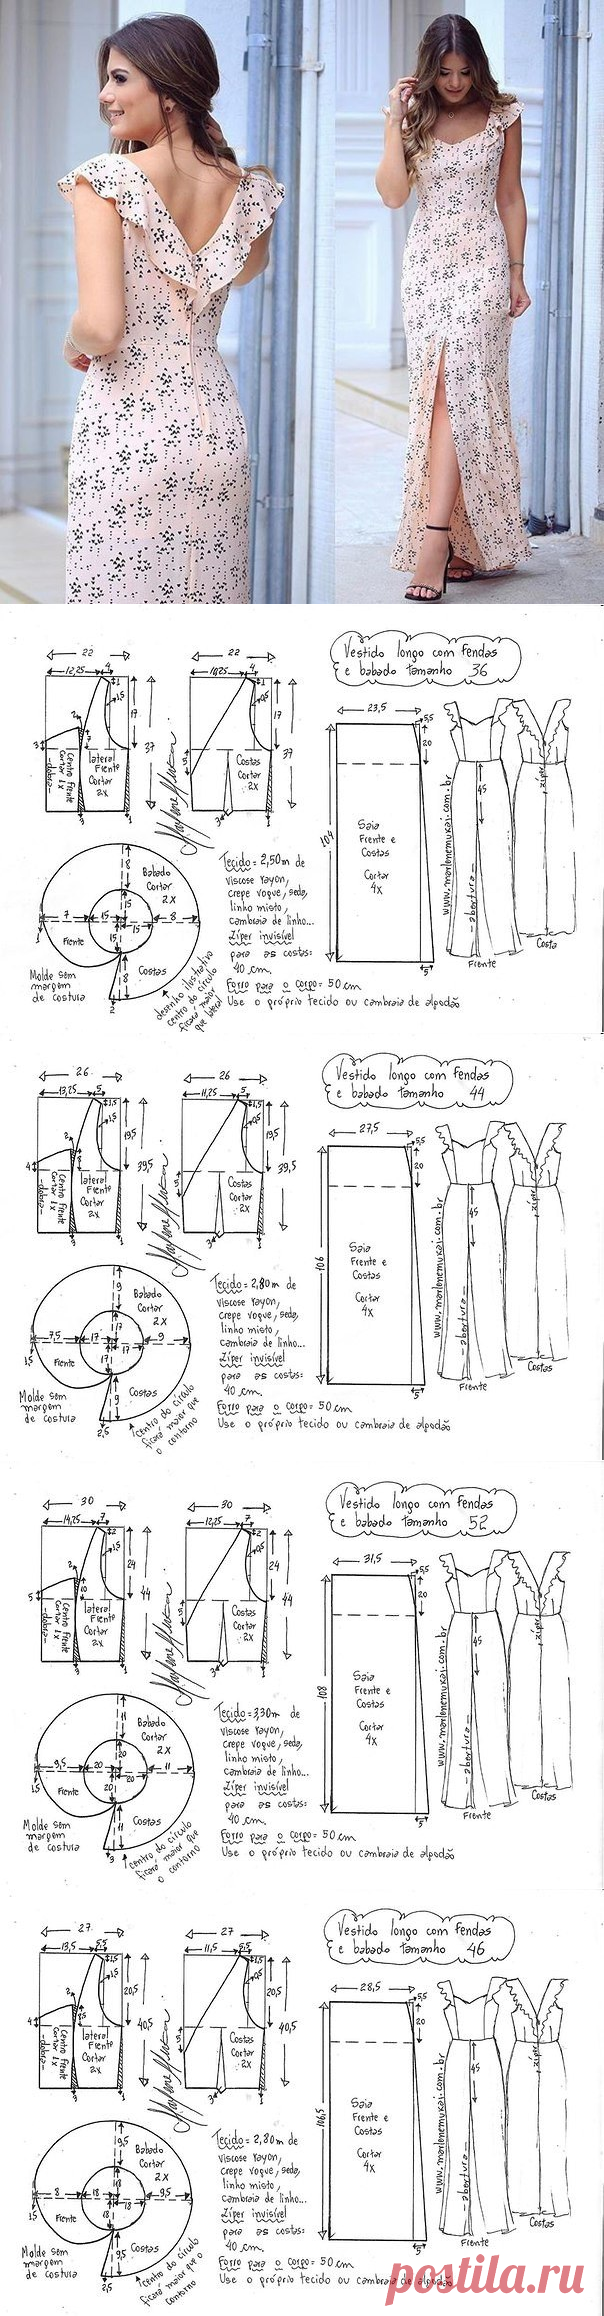 22
22
12,25
4
10,25
4
Vestido longo com fendas
e babado tamanho 36
1
1,5
17
37
2
7
3
Centro Frente
Cortar 1x
-dobra-
lateral
Frente
Cortar
2x
3
1
1
0,5
17
37
5
Costas
Cortar
2x
3
1
23,5
5,5
20
104
Saia
Frente e
Costas
Cortar
4x
5
45
-abertura-
zíper
www.marlenemukai.com.br
Frente
Costa
Babado
Cortar
2x
8
15
7
15
15
8
15
8
1
2
Frente
Costas
Molde sem
margem
de costura
desenho ilustrativo
centro do círculo
ficará maior
que lateral
Tecido = 2,50m de
viscose rayon,
crepe voque, seda,
linho misto,
cambraia de linho...
Zíper invisível
para as costas:
40 cm.
Forro para o corpo = 50 cm
Use o próprio tecido ou cambraia de algodão
26
26
13,25
5
11,25
5
Vestido longo com fendas
e babado tamanho 44
1,5
1,5
19,5
39,5
2
8
4
Centro Frente
Cortar 1x
-dobra-
lateral
Frente
Cortar
2x
3
1
1,5
0,5
19,5
39,5
5
Costas
Cortar
2x
3
1
27,5
5,5
20
106
Saia
Frente e
Costas
Cortar
4x
5
45
-abertura-
zíper
www.marlenemukai.com.br
Frente
Costas
Babado
Cortar
2x
9
17
7,5
17
17
9
17
9
1,5
2,5
Frente
Costas
Molde sem
margem
de costura
centro do círculo
ficará maior que
o contorno
Tecido = 2,80m de
viscose rayon,
crepe voque, seda,
linho misto,
cambraia de linho...
Zíper invisível
para as costas:
40 cm.
Forro para o corpo = 50 cm
Use o próprio tecido ou cambraia de algodão
30
30
14,25
7
12,25
7
Vestido longo com fendas
e babado tamanho 52
2
1,5
24
44
2
10
5
Centro Frente
Cortar 1x
-dobra-
lateral
Frente
Cortar
2x
3
1
2
0,5
24
44
5
Costas
Cortar
2x
3
1
31,5
5,5
20
108
Saia
Frente e
Costas
Cortar
4x
5
45
-abertura-
zíper
www.marlenemukai.com.br
Frente
Costas
Babado
Cortar
2X
11
20
9,5
20
20
11
20
11
1,5
3
Frente
Costas
Molde sem
margem
de costura
centro do círculo
ficará maior que
o contorno
Tecido = 3,30m de
viscose rayon,
crepe voque, seda,
linho misto,
cambraia de linho...
Zíper invisível
para as costas:
40 cm.
Forro para o corpo = 50 cm
Use o próprio tecido ou cambraia de algodão
27
27
13,5
5,5
11,5
5,5
Vestido longo com fendas
e babado tamanho 46
1,5
1,5
20,5
40,5
2
4
Centro Frente
Cortar 1x
-dobra-
lateral
Frente
Cortar
2x
3
1
1,5
0,5
20,5
40,5
5
Costas
Cortar
2x
3
1
28,5
5,5
20
106,5
Saia
Frente e
Costas
Cortar
4x
5
45
-abertura-
zíper
www.marlenemukai.com.br
Frente
Costas
Babado
Cortar
2X
9,5
18
8
18
18
9,5
18
9,5
1,5
2,5
Frente
Costas
Molde sem
margem
de costura
centro do círculo
ficará maior que o
contorno
Tecido = 2,80m de
viscose rayon,
crepe voque, seda,
linho misto,
cambraia de linho...
Zíper invisível
para as costas:
40 cm.
Forro para o corpo = 50 cm
Use o próprio tecido ou cambraia de algodão
postila.ru